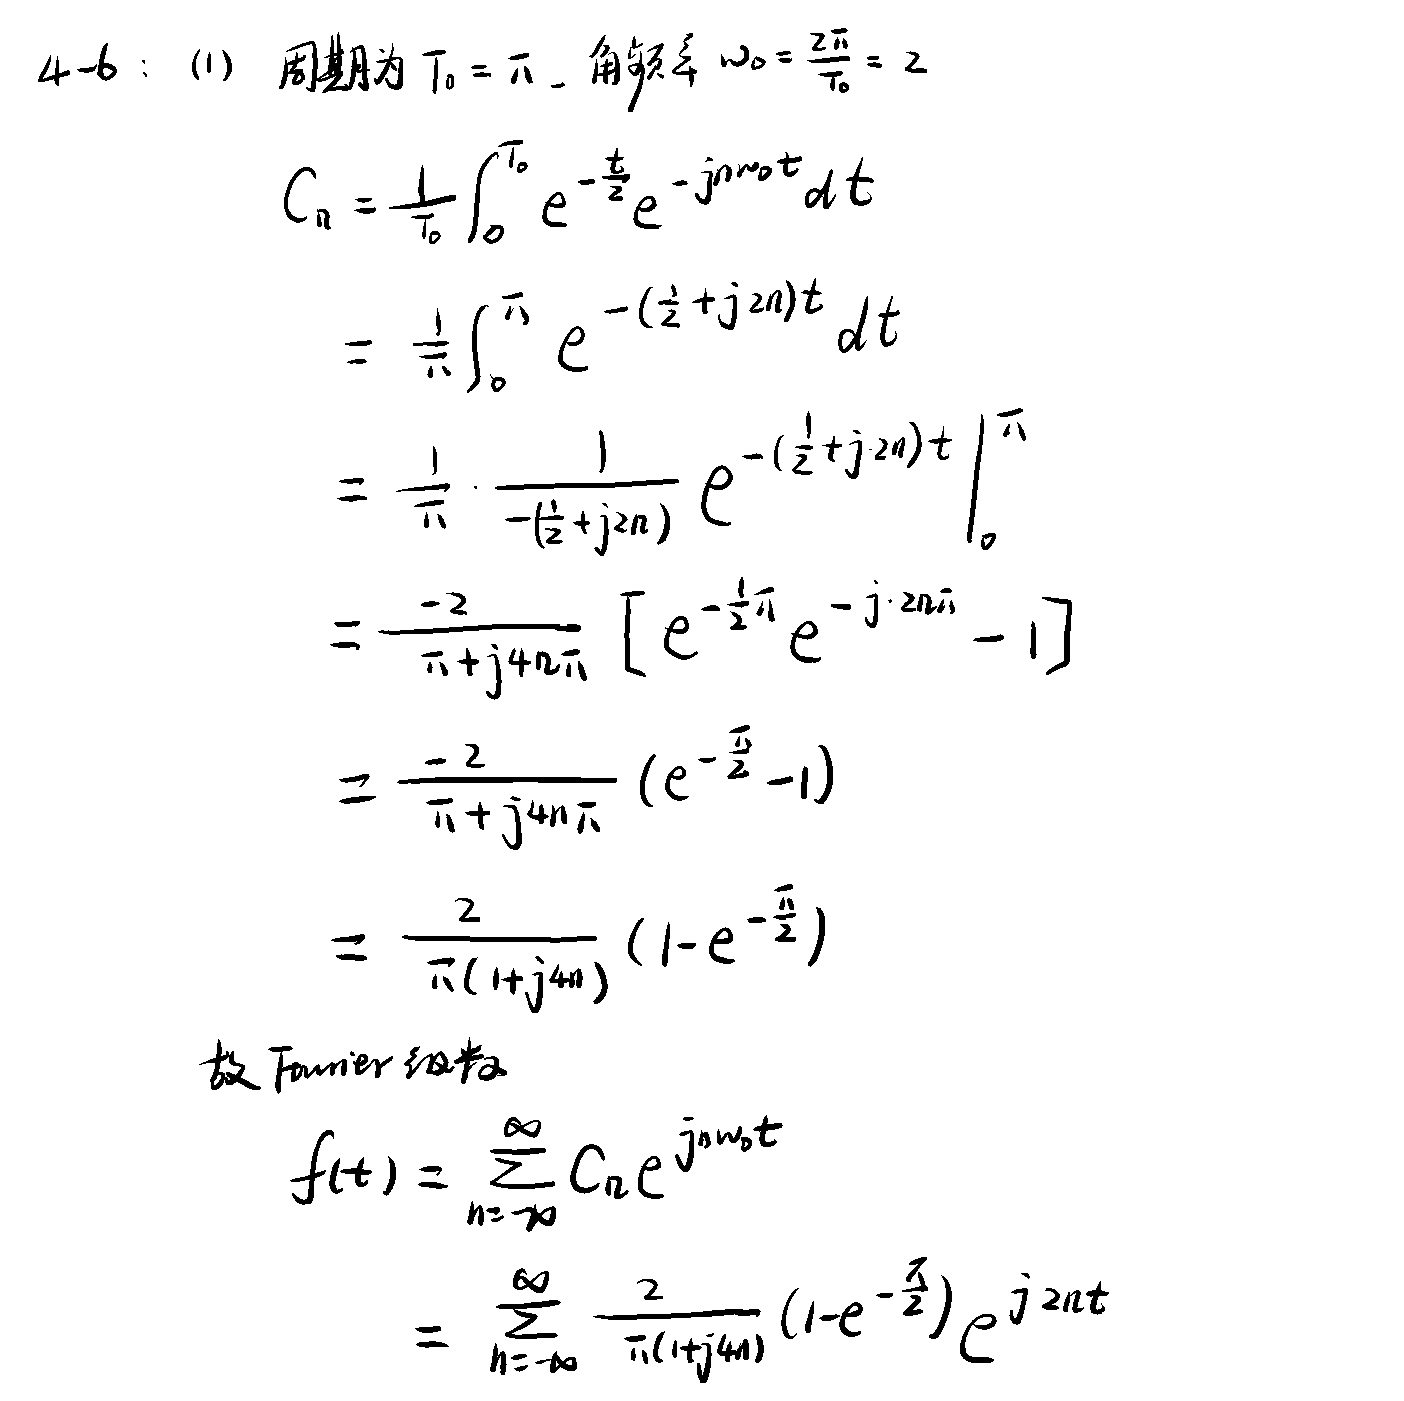 4-6： (1) 周期为 T₀ = π. 角频率 w₀ = \frac{2π}{T₀} = 2
Cₙ = \frac{1}{T₀} ∫_0^{T₀} e^{-\frac{t}{2}} e^{-jnw₀t} dt
= \frac{1}{π} ∫_0^{π} e^{-(\frac{1}{2}+j2n)t} dt
= \frac{1}{π} · \frac{1}{-(\frac{1}{2}+j2n)} e^{-(\frac{1}{2}+j·2n)t} |_0^{π}
= \frac{-2}{π+j4nπ} [e^{-\frac{1}{2}π} e^{-j·2nπ} - 1]
= \frac{-2}{π+j4nπ} (e^{-\frac{π}{2}} - 1)
= \frac{2}{π(1+j4n)} (1-e^{-\frac{π}{2}})
故 Fourier 级数
f(t) = \sum_{n=-∞}^{∞} Cₙ e^{jnw₀t}
= \sum_{n=-∞}^{∞} \frac{2}{π(1+j4n)} (1-e^{-\frac{π}{2}}) e^{j2nt}